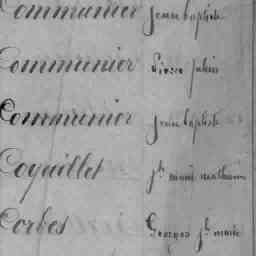 Communier jean baptiste
Communier Pierre julien
Communier jean baptiste
Coquillet jh marie mathurin
Corbes Georges jh marie